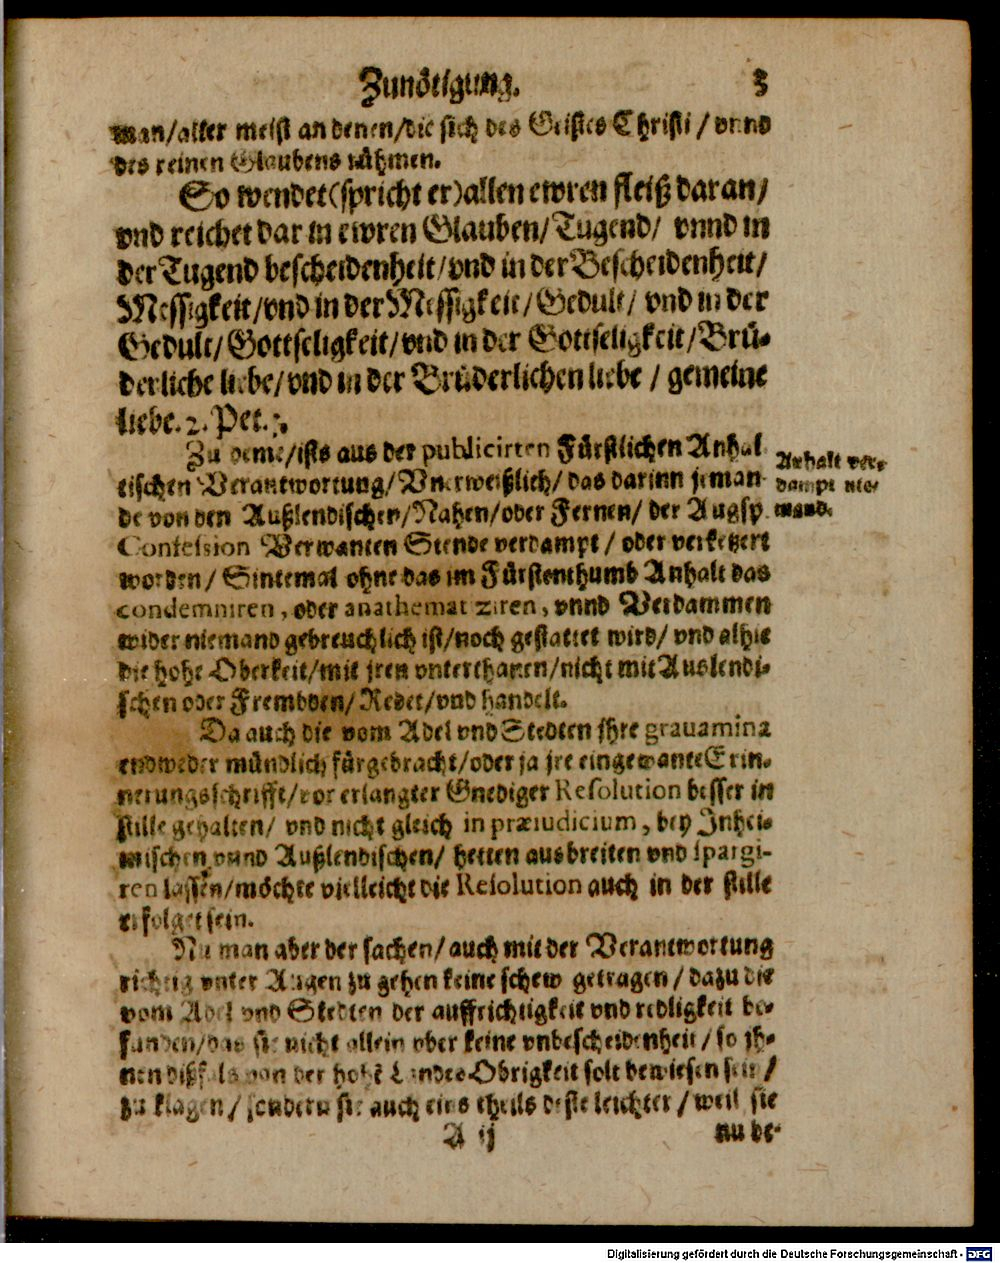 Zunötigung. 3
man/aller meist an denen/die sich des Geistes Christi / vnnd
des reinen Glaubens rühmen.
So wendet(spricht er)allen ewren fleiß daran/
vnd reichet dar in ewren Glauben/Tugend/ vnnd in
der Tugend bescheidenheit/vnd in der Bescheidenheit/
Messigkeit/vnd in der Messigkeit/Gedult/ vnd in der
Gedult/Gottseligkeit/vnd in der Gottseligkeit/Brü-
derliche liebe/vnd in der Brüderlichen liebe / gemeine
liebe. 2. Pet.
Zu deme/ists aus der publicirten Fürstlichen Anhal
tischen Verantwortung/Vnerweißlich/das darinn jeman
de von den Außlendischen/Nahen/oder Fernen/ der Augsp.
Confession Verwanten Stende verdampt / oder verketzert
worden/ Sintemal ohne das im Fürstenthumb Anhalt das
condemniren, oder anathematiziren, vnnd Verdammen
wider niemand gebreuchlich ist/noch gestattet wird/ vnd alhie
die hohe Oberkeit/mit jren vnterthanen/nicht mit Auslendi-
schen oder Frembden/Redet/vnd handelt.
Anhalt ver-
dampt nie-
mand.
Da auch die vom Adel vnd Stedten ihre grauamina
endweder mündlich fürgebracht/oder ja jre eingewante Erin-
nerungsschrifft/vor erlangter Gnediger Resolution besser in
stille gehalten/ vnd nicht gleich in præiudicium, bey Inhei-
mischen vnnd Außlendischen/ hetten ausbreiten vnd spargi-
ren lassen/möchte vielleicht die Resolution auch in der stille
erfolget sein.
Nu man aber der sachen/auch mit der Verantwortung
richtig vnter Augen zu gehen keine schew getragen / dazu die
vom Adel vnd Stedten der auffrichtigkeit vnd redligkeit be-
funden/das sie nicht allein vber keine vnbescheidenheit/so ih-
nen dißfals von der hohē Landes Obrigkeit solt bewiesen sein /
zu klagen/ sondern sie auch eins theils deste leichter / weil sie
A ij nu be-
Digitalisierung gefördert durch die Deutsche Forschungsgemeinschaft - DFG